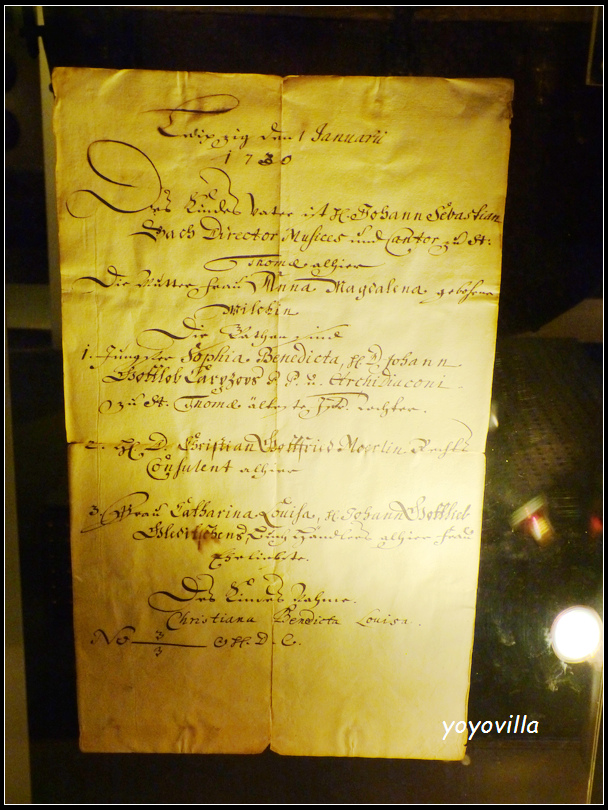 Leipzig den 1 Januarii
1730
Des Kindes Vater ist H. Johann Sebastian
Bach Director Musices und Cantor zu St.
Thomæ alhier
Die Mutter Frau Anna Magdalena gebohrne
Wilckin
Die Pathen sind
1. Jungfer Sophia Benedicta, H. D. Johann
Gottlob Carpzovs P. P. u. Archi Diaconi
zu St. Thomæ älteste Tochter.
2. H. D. Christian Gottfried Moerlin Rechts
Consulent alhier
3. Frau Catharina Louisa, H. Johann Gottlieb
Handlers alhier Frau
Eheliebste.
Des Kindes Nahme.
Christiana Bendicta Louisa.
No 3
3
yoyovilla